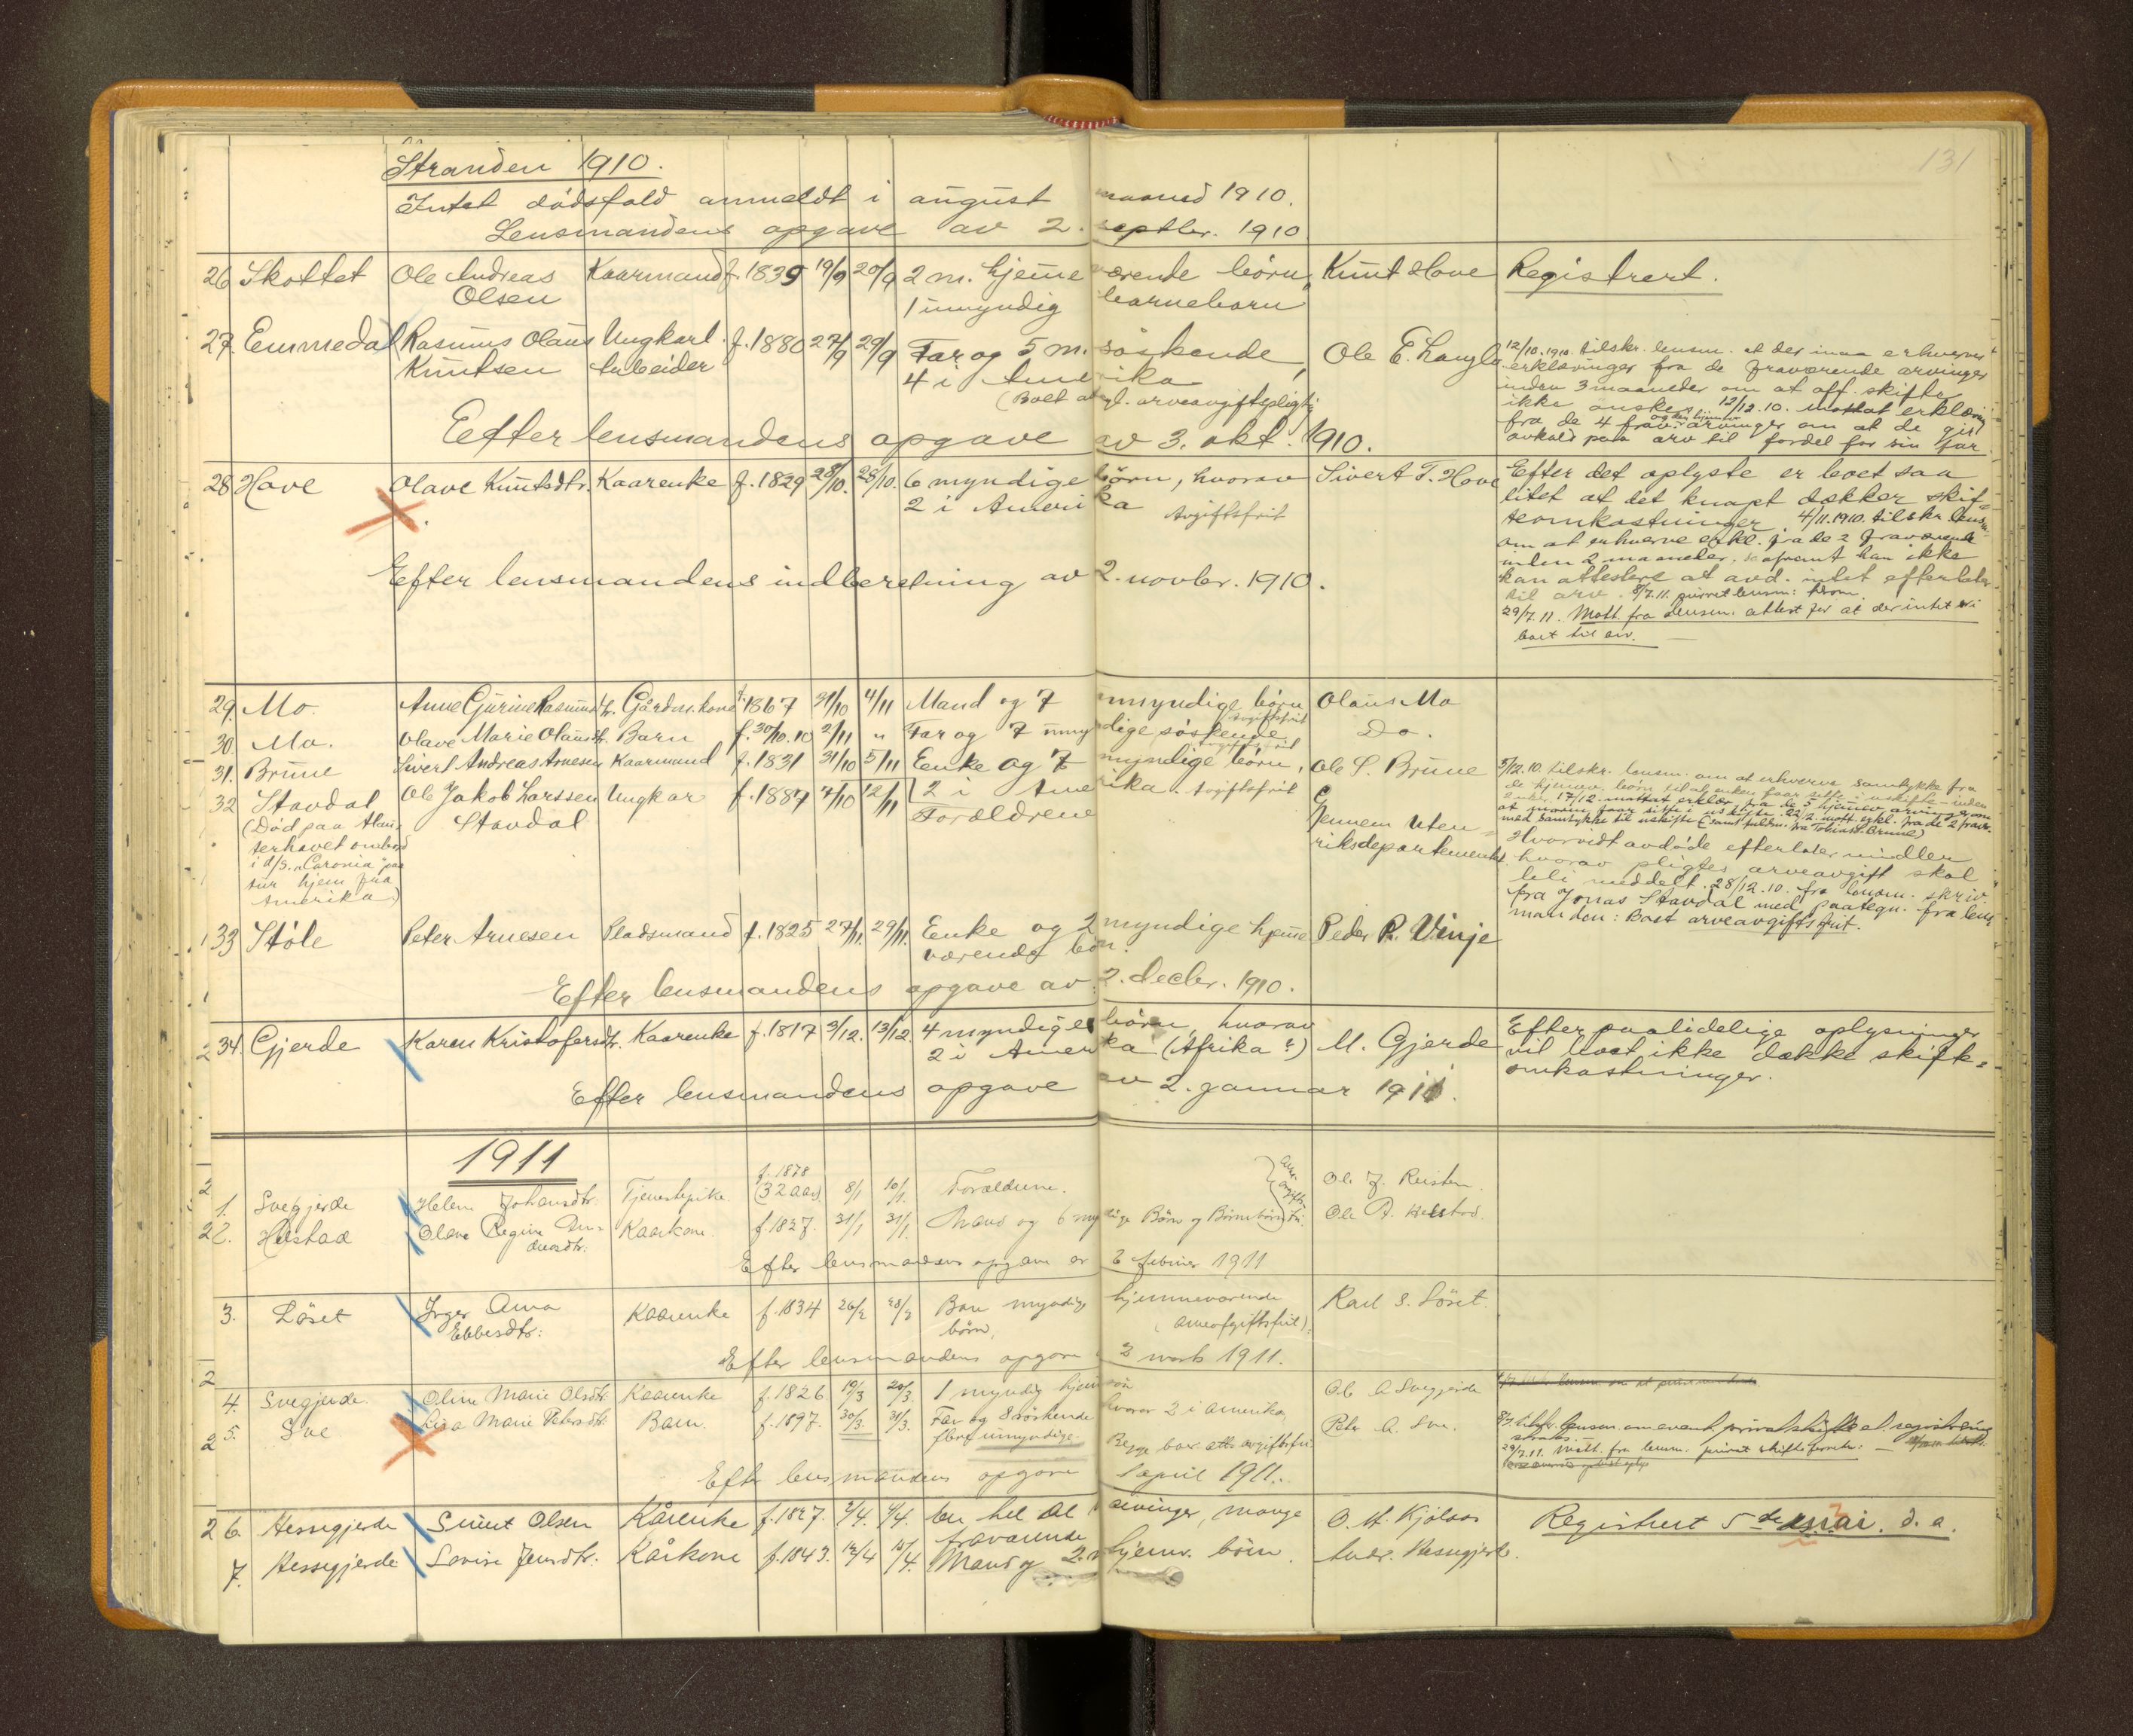 131
Stranden 1910.
Intet dödsfald anmeldt i august maaned 1910.
Lensmandens opgave av 2. septbr. 1910
26 Skottet Ole Andreas Kaarmand f. 1839 19/9 20/9 2 m. hjemmeværende börn, Knut Hove Registrert.
Olsen 1 umyndig barnebarn
27. Emmedal Rasmus Olaus Ungkarl. f. 1880 27/9 29/9 Far og 5 m. söskende, Ole E. Langlo
Knutsen Arbeider 4 i Amerika
(Boet arveavgiftspligtig
12/10. 1910. tilskr. lensm. at der maa erhverves
erklæringer fra de fraværende arvinger
inden 3 maaneder om at off. skifte
ikke önskes. 12/12.10. mottat erklæring
fra de 4 frav. arvinger om at de gir
avkald paa arv til fordel for sin far
Efter lensmandens opgave av 3. okt. 1910.
28 Hove Olave Knutsdtr. Kaarenke f. 1829 28/10. 28/10. 6 myndige börn, hvorav Sivert T. Hove
2 i Amerika Avgiftsfrit
Efter det oplyste er boet saa
litet at det knapt dækker skif-
teomkostninger. 4/11.1910. tilskr. lensm.
om at erhverve erkl. fra de 2 fraværende
inden 2 maaneder. saafremt han ikke
kan attestere at avd. intet efterlater
til arv. 8/7.11. purret lensm: herom.
29/7.11. Mott. fra lensm. attest for at der intet er i
boet til arv.
Efter lensmandens indberetning av 2. novbr. 1910.
29. Mo. Anne Gurine Rasmusdtr. Gårdm. kone f. 1867 31/10 4/11 Mand og 7 umyndige börn Olaus Mo
Avgiftsfrit
30. Mo. Olave Marie Olausdtr. Barn f. 30/10.10 2/11 " Far og 7 umyndige söskende Do.
Avgiftsfrit
31. Brune Sivert Andreas Arnesen Kaarmand f. 1831 31/10 5/11 Enke og 7 myndige börn, Ole S. Brune
2 i Amerika. Avgiftsfrit
5/12.10. tilskr. lensm. om at erhverve samtykke fra
17/12. mottat erklær. fra de 5 hjemmev. arvinger om
32 Stavdal Ole Jakob Larssen Ungkar f. 1887 7/10 12/11 Forældrene Gjennem Uten-
(Död paa Atlan- Stavdal riksdepartementet
terhavet ombord
i d/s. "Caronia" paa
tur hjem fra
Amerika)
Hvorvidt avdöde efterlater midler
hvorav pligtes arveavgift skal
bli meddelt. 28/12.10. fra lensm. skriv.
fra Jonas Stavdal med paategn. fra lens-
manden: Boet arveavgiftsfrit.
33 Störe Peter Arnesen Pladsmand f. 1825 27/11. 29/11. Enke og 2 myndige hjemme Peder P. Vinje
værende börn.
Efter lensmandens opgave av 2. decbr. 1910.
34. Gjerde Karen Kristofersdtr. Kaarenke f. 1817 3/12. 13/12. 4 myndige börn, hvorav M. Gjerde
2 i Amerika (Afrika?)
Efter paalidelige oplysninger
vil boet ikke dække skifte-
omkostninger.
Efter lensmandens opgave av 2. januar 1911.
1911
1. Svegjerde Helene Johansdtr. Tjenestepike f. 1878 (32 aar) 8/1 10/1. Forældrene. Ole J. Reiten.
2. Helstad Olave Regine An- Kaarkone. f. 1827. 31/1 31/1. Mand og 6 myndige Börn og Börnebörn Ole A. Helstad.
dersdtr.
Efter lensmandens opgave av 2 februar 1911
3. Löset Inger Anna Kaarenke f. 1834 26/2 28/2 Bare myndige hjemmeværende Karl S. Löset.
Ebbesdtr: börn. (Arveafgiftsfrit).
Efter lensmandens opgave 2 marts 1911.
4. Svegjerde Oline Marie Olsdtr. Kaarenke f. 1826 19/3 20/3. 1 myndig hjem Ole A Svegjerde
5. Sve Marie Petersdtr. Barn. f. 1897. 30/3. 31/3. Far og 8 söskende hvorav 2 i Amerika Peter A. Sve.
flere umyndige. Begge boer avgiftsfri
29/7.11. Mott. fra lensm. privat skifteforretn.
Efter lensmandens opgave 1 april 1911.
6. Hessegjerde Severt Olsen Kårenke f. 1827. 2/4. 4/4. En hel del arvinger, mange O. M. Kjölaas Registrert 5te mai d. a.
fraværende
7. Hessegjerde Lovise Jensdtr. Kårkone f. 1843. 12/4 15/4. Mand og 2 hjemv. börn. Andr. Hessegjerde.